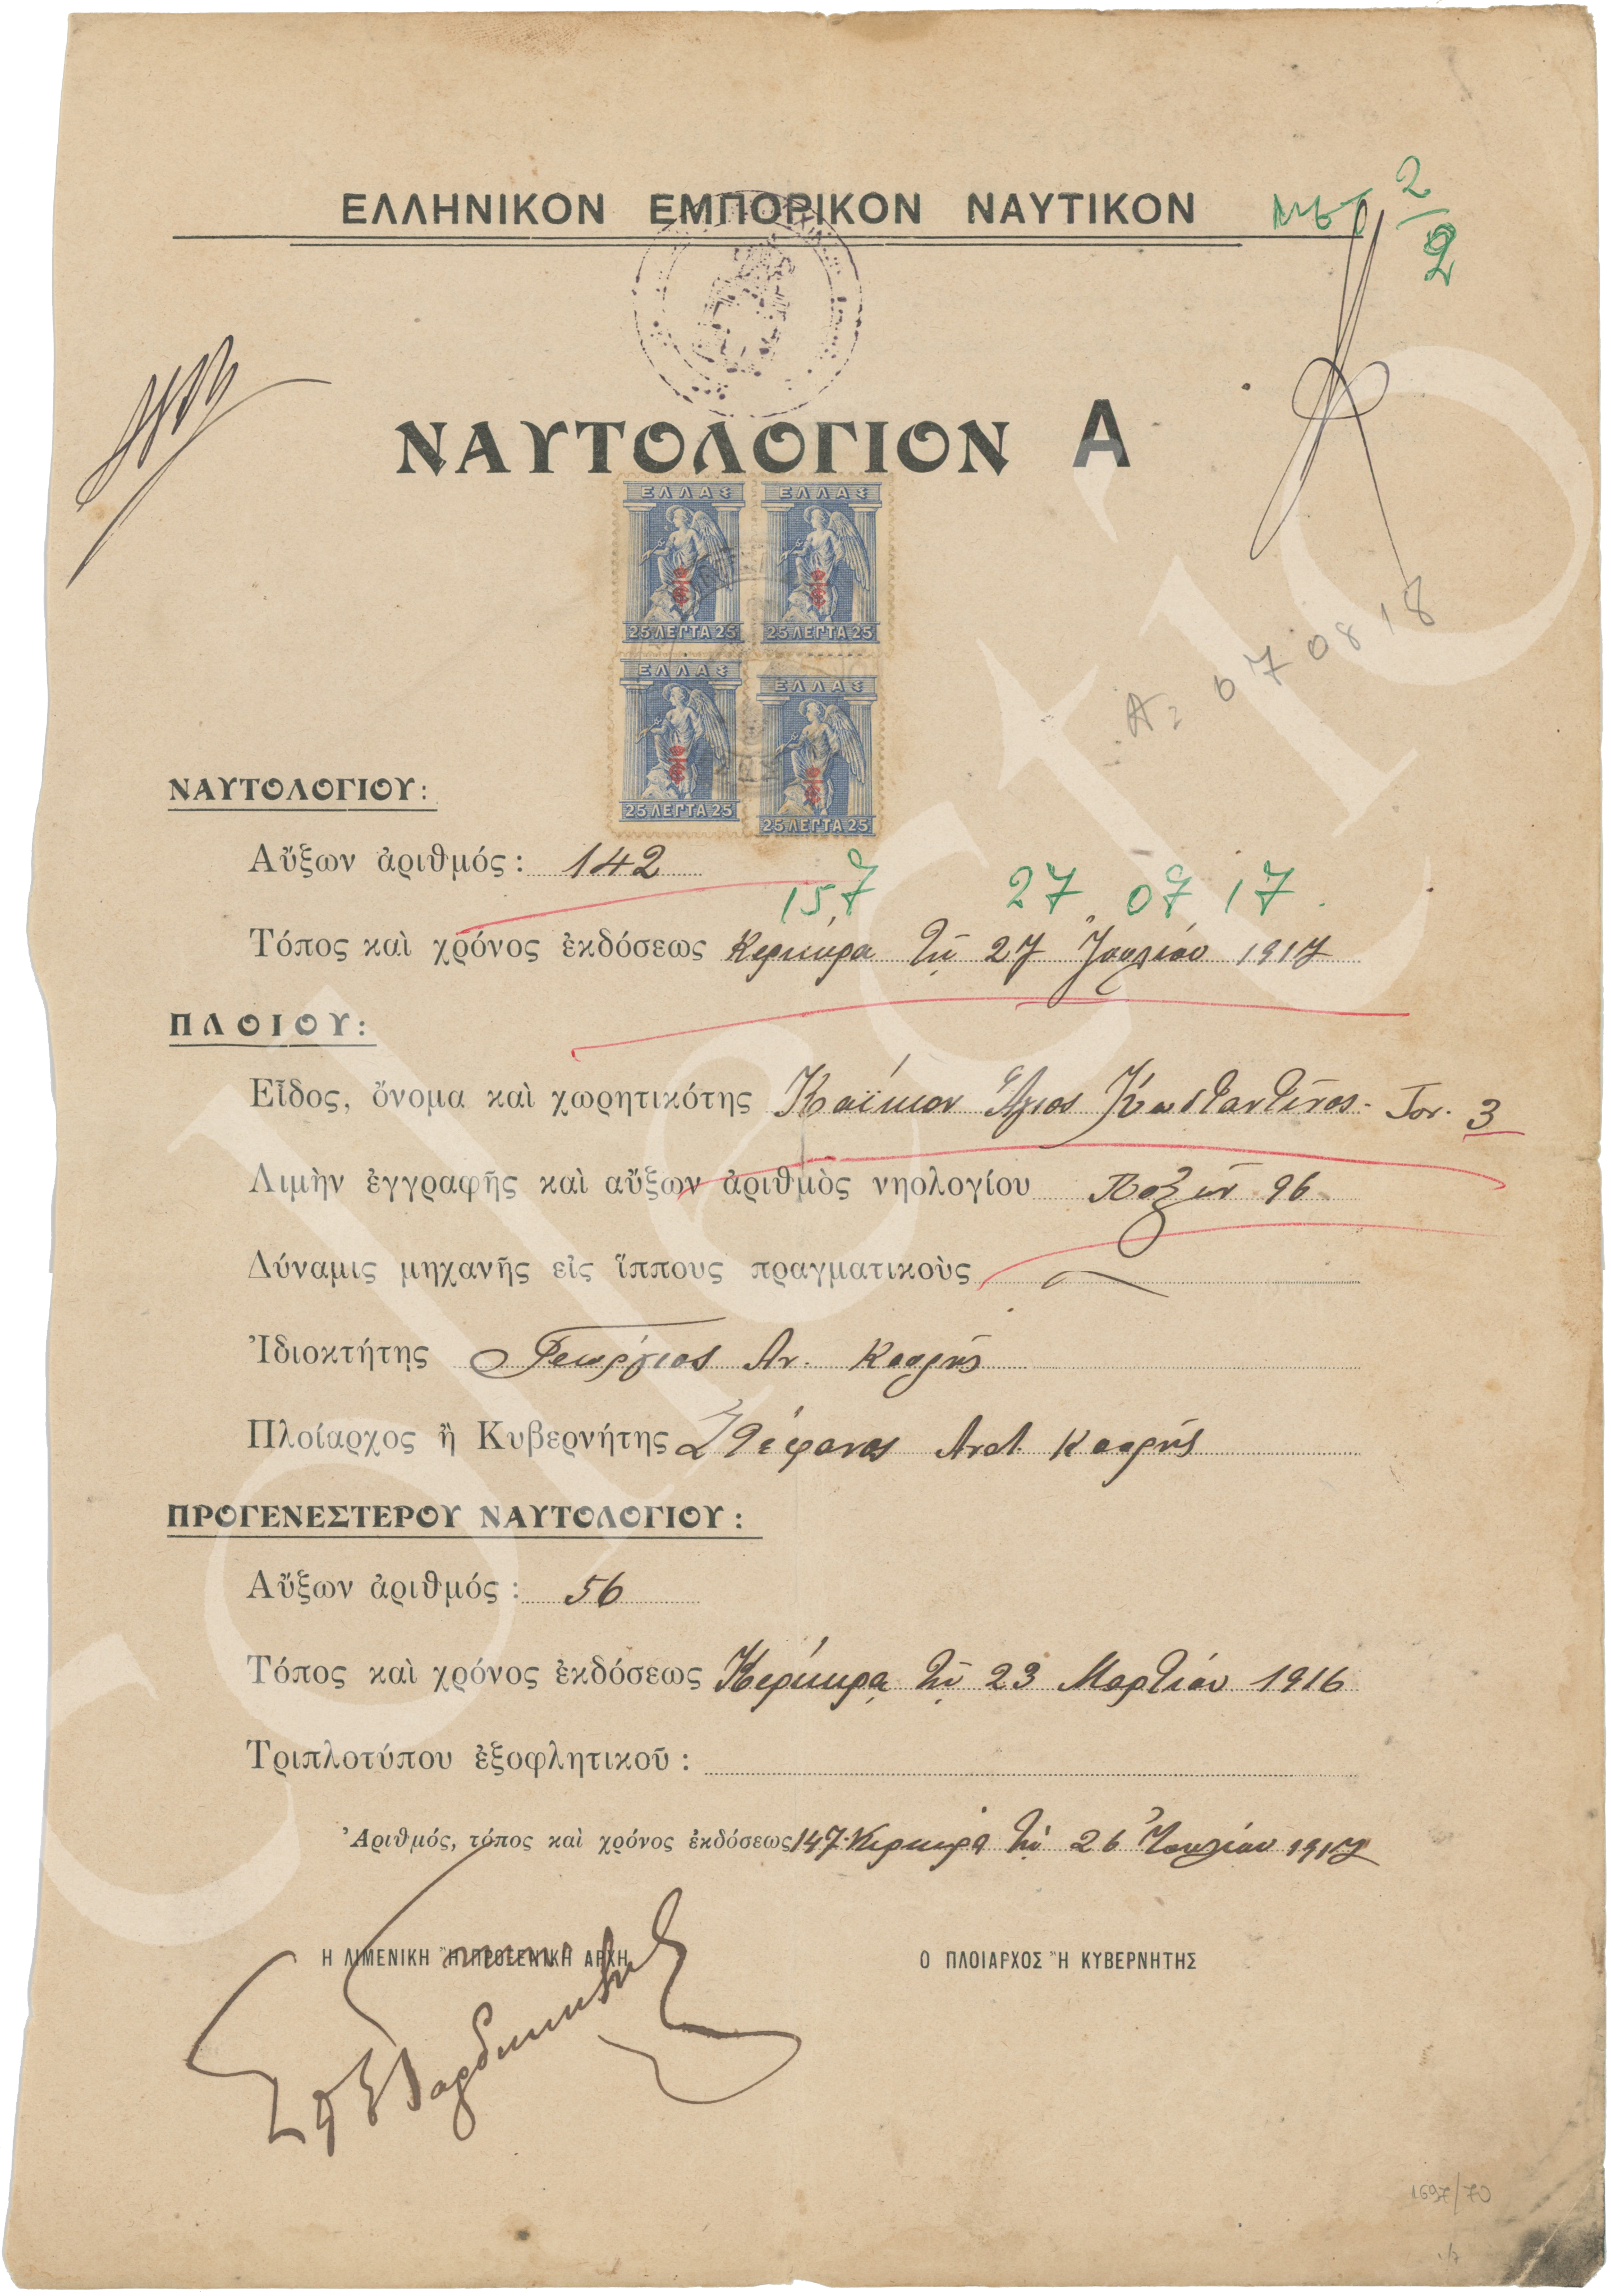 ΕΛΛΗΝΙΚΟΝ ΕΜΠΟΡΙΚΟΝ ΝΑΥΤΙΚΟΝ
2/2
ΝΑΥΤΟΛΟΓΙΟΝ Α
ΕΛΛΑΣ ΕΛΛΑΣ
25 ΛΕΠΤΑ 25 25 ΛΕΠΤΑ 25
ΕΛΛΑΣ ΕΛΛΑΣ
25 ΛΕΠΤΑ 25 25 ΛΕΠΤΑ 25
070818
ΝΑΥΤΟΛΟΓΙΟΥ:
Αὔξων ἀριθμός: 142
157 27 07 17.
Τόπος καὶ χρόνος ἐκδόσεως Κερκύρα τῇ 27 Ἰουλίου 1917
ΠΛΟΙΟΥ:
Εἶδος, ὄνομα καὶ χωρητικότης Καΐκιον Ἅγιος Κωνσταντῖνος. Τον. 3
Λιμὴν ἐγγραφῆς καὶ αὔξων ἀριθμὸς νηολογίου Παξῶν 96
Δύναμις μηχανῆς εἰς ἵππους πραγματικοὺς
Ἰδιοκτήτης Γεώργιος Αν.
Πλοίαρχος ἢ Κυβερνήτης Στέφανος
ΠΡΟΓΕΝΕΣΤΕΡΟΥ ΝΑΥΤΟΛΟΓΙΟΥ:
Αὔξων ἀριθμός: 56
Τόπος καὶ χρόνος ἐκδόσεως Κέρκυρα τῇ 23 Μαρτίου 1916
Τριπλοτύπου ἐξοφλητικοῦ:
Ἀριθμός, τόπος καὶ χρόνος ἐκδόσεως 147 Κερκυρα τῇ 26 Ἰουλίου 1917
Η ΛΙΜΕΝΙΚΗ Ἢ ΠΡΟΞΕΝΙΚΗ ΑΡΧΗ
Ο ΠΛΟΙΑΡΧΟΣ Ἢ ΚΥΒΕΡΝΗΤΗΣ
1697/70
collectio